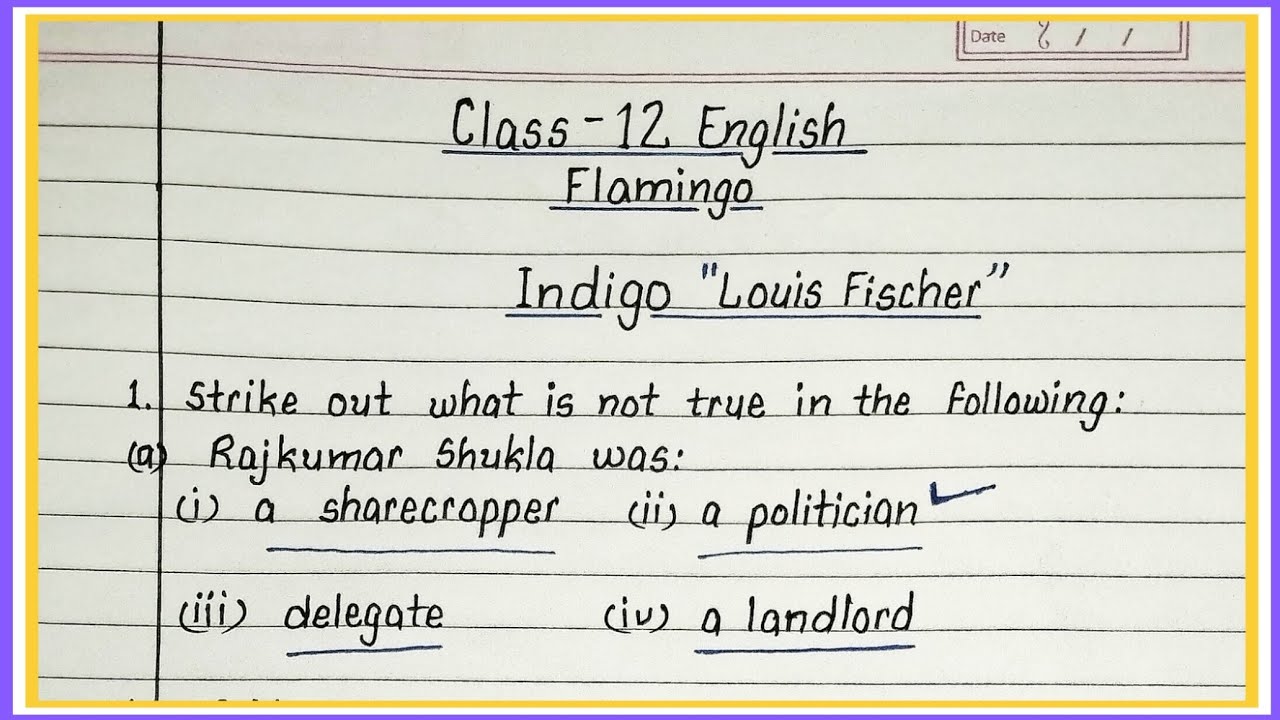 Date 8 / /
Class-12 English
Flamingo
Indigo "Louis Fischer"
1. Strike out what is not true in the following:
(a) Rajkumar Shukla was:
(i) a sharecropper (ii) a politician ✓
(iii) delegate (iv) a landlord